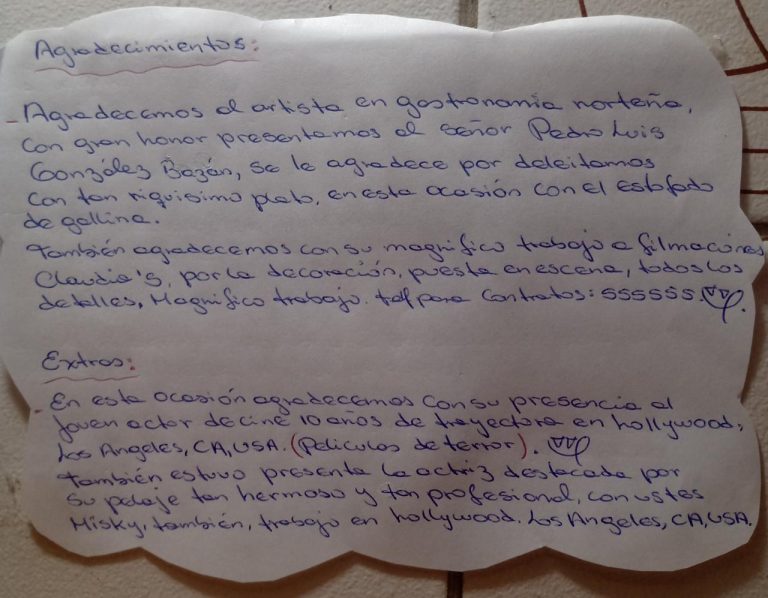 Agradecimientos:
- Agradecemos al artista en gastronomía norteña,
con gran honor presentamos al señor Pedro Luis
González Bazán, se le agradece por deleitarnos
con tan riquisimo plato, en esta ocasión con el estofado
de gallina.
También agradecemos con su magnifico trabajo a filmaciones
Claudia's, por la decoración, puesta en escena, todos los
detalles, Magnifico trabajo. telf para contratos: 555555.
Extras:
- En esta ocasión agradecemos con su presencia al
joven actor de cine 10 años de trayectora en hollywood,
Los Angeles, CA, USA. (Peliculas de terror).
También estuvo presente la actriz destacada por
su pelaje tan hermoso y tan profesional, con ustes
Misky, también, trabajo en hollywood, Los Angeles, CA, USA.